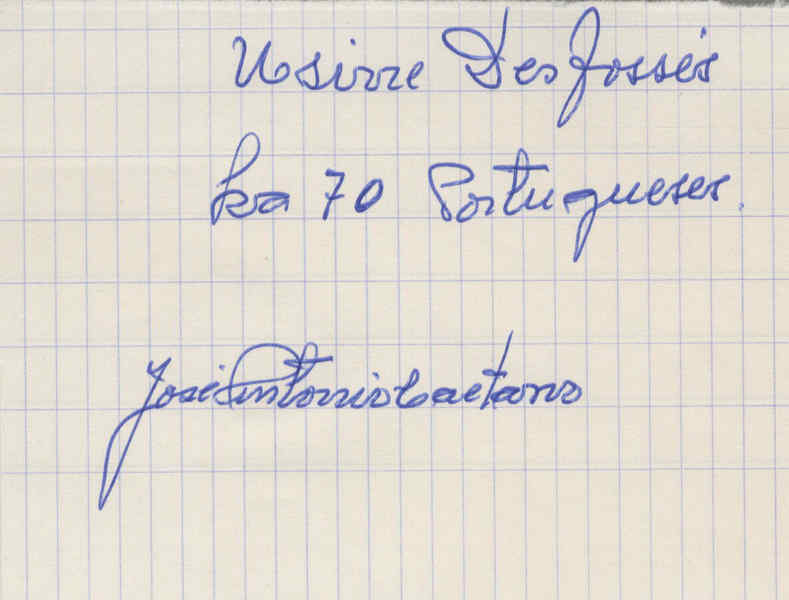 Usirre Des fossés
ha 70 Portugueses.
José Antonio Caetano